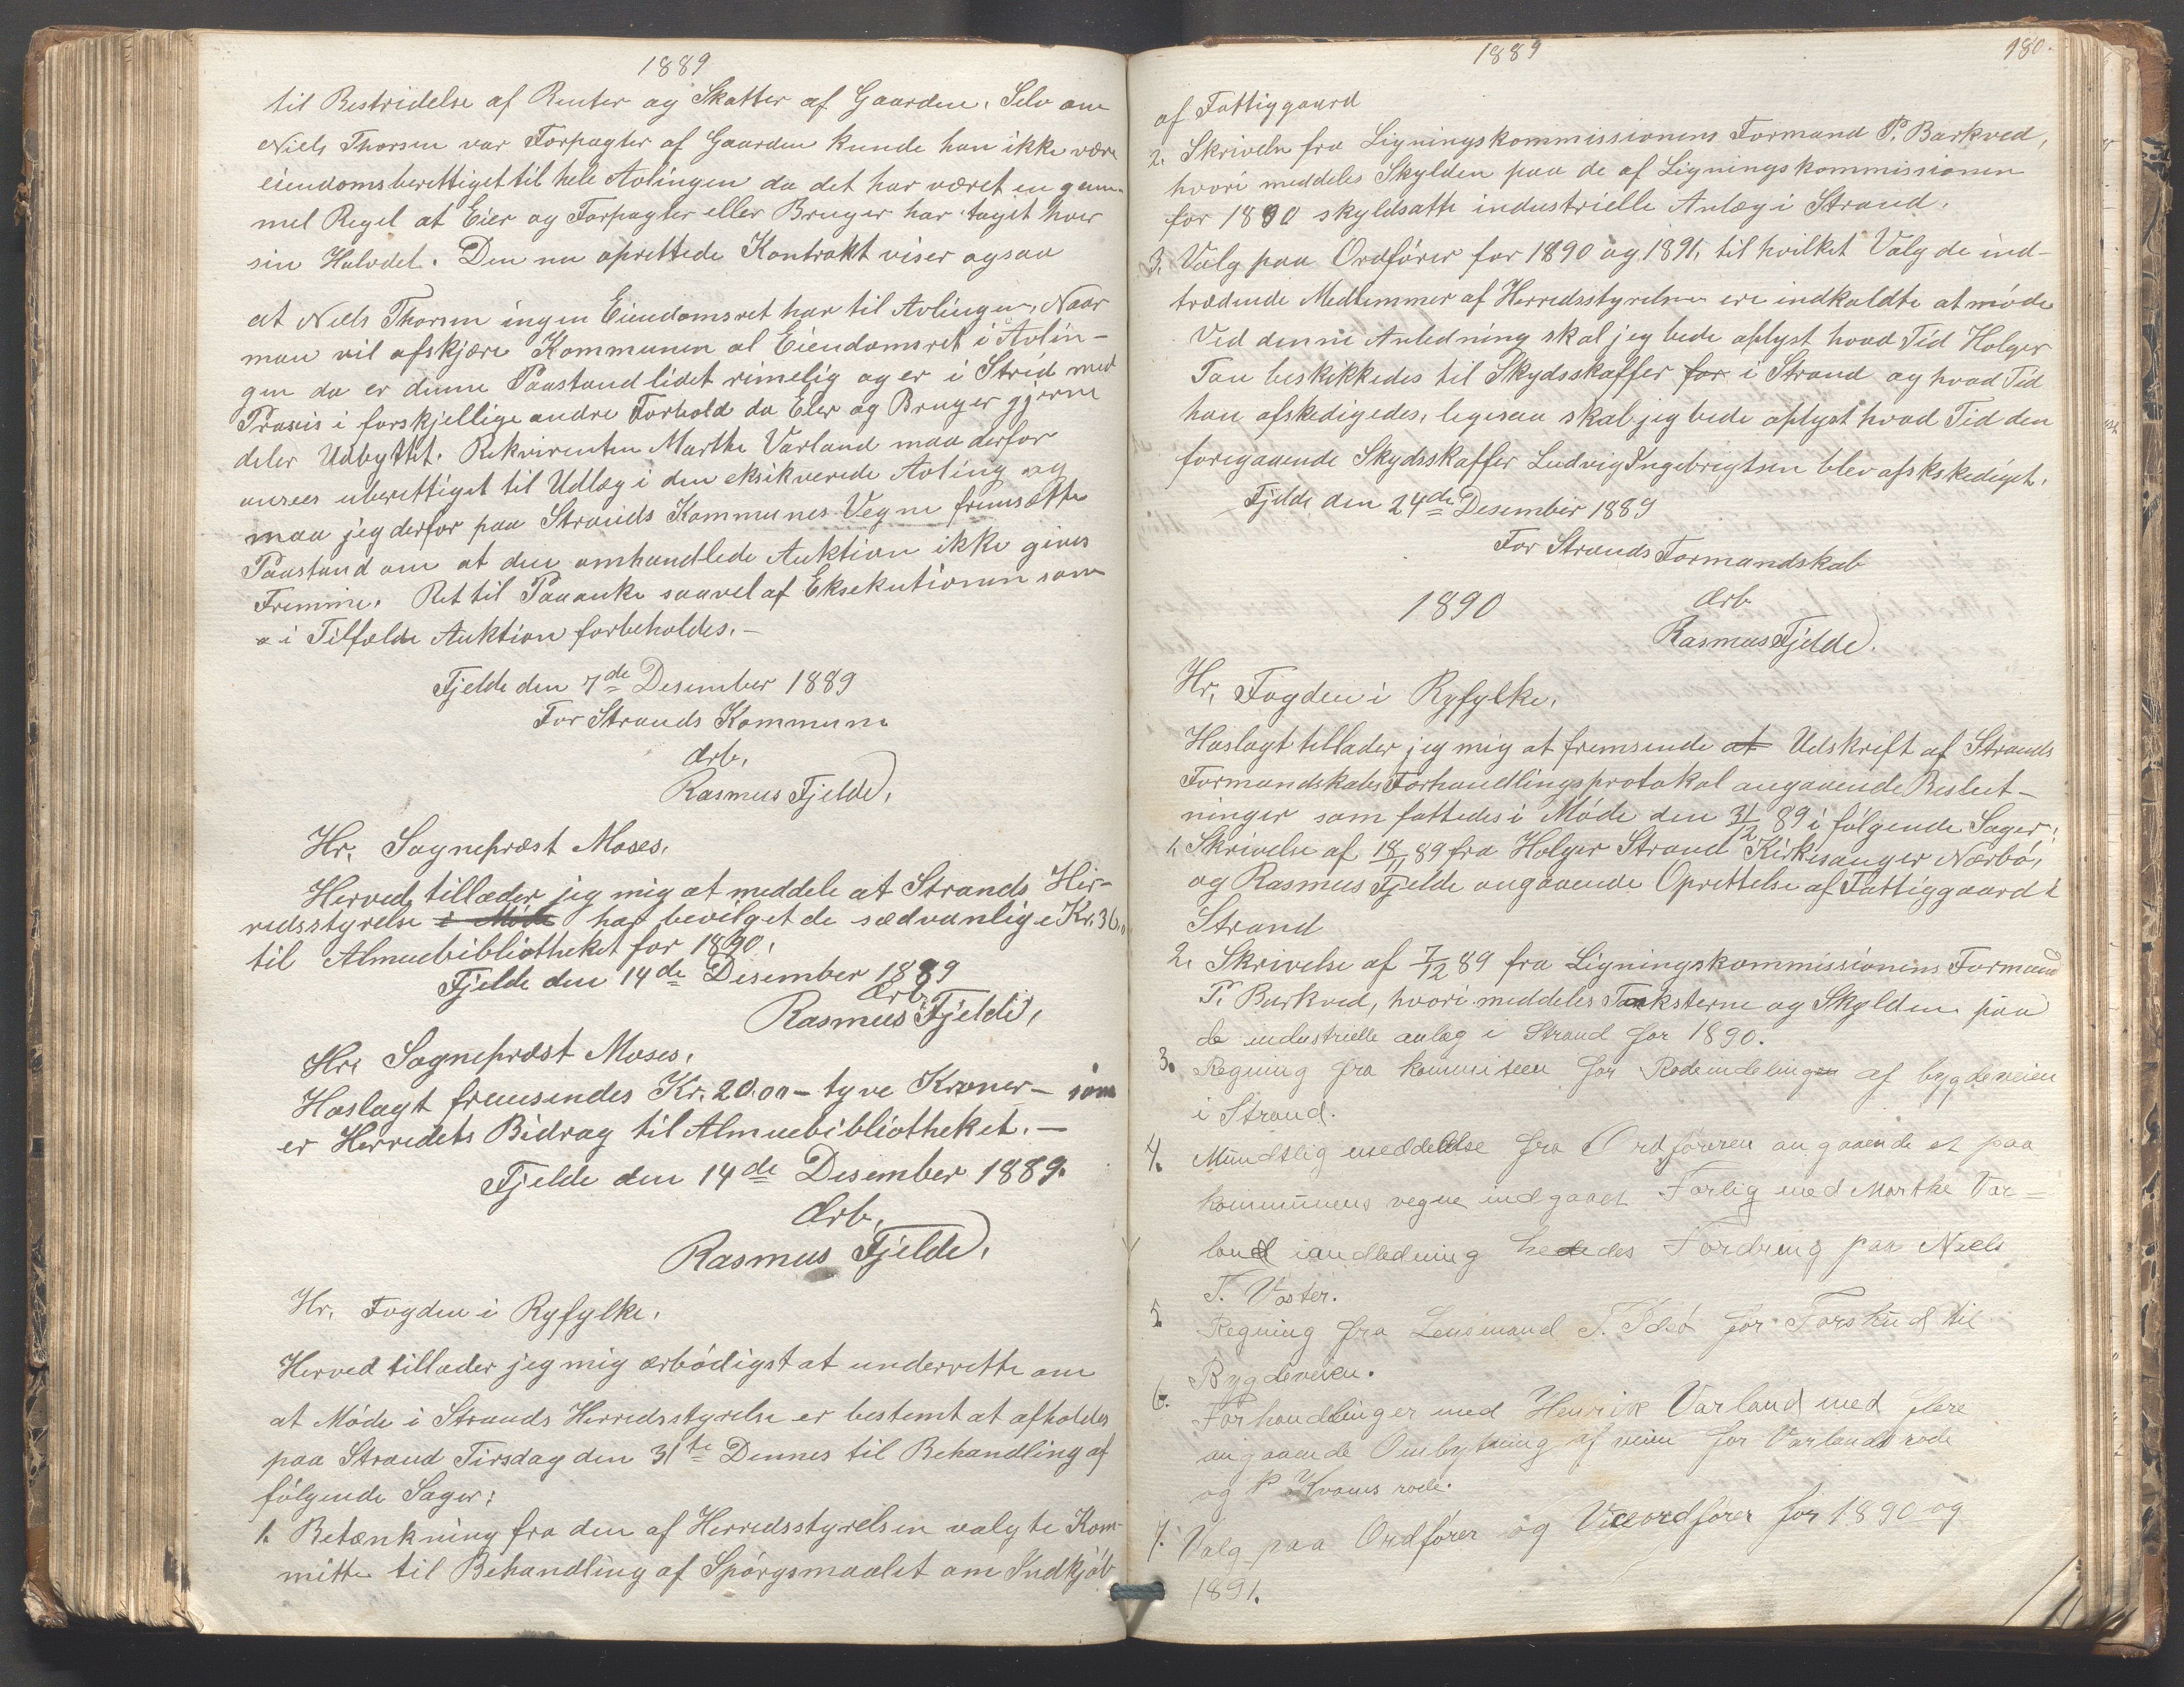 1889
til Bestridelse af Renter og Skatter af Gaarden. Selv om
Niels Thorsen var Forpagter af Gaarden kunde han ikke være
eiendomsberettiget til hele Avlingen da det har været en gam-
mel Regel at Eier og Forpagter eller Bruger har taget hver
sin Halvdel. Den nu oprettede Kontrakt viser ogsaa
at Niels Thorsen ingen Eiendomsret har til Avlingen, Naar
man vil afskjære Kommunen al Eiendomsret i Avlin-
gen da er denne Paastand lidet rimelig og er i Strid med
Praxis i forskjellige andre Forhold da Eier og Bruger gjerne
deler Udbyttet. Rekvirenten Marthe Varland maa derfor
ansees uberettiget til Udlæg i den eksikverede Avling og
maa jeg derfor paa Strands Kommunes Vegne fremsætte
Paastand om at den omhandlede Auktion ikke gives
Fremme. Ret til Paaanke saavel af Eksekutionen som
i Tilfælde Auktion forbeholdes.-
Fjelde den 7de Desember 1889
For Strands Kommune
Ærb,
Rasmus Fjelde,
Hr. Sogneprest Moses.
Herved tillader jeg mig at meddele at Strands Her-
redsstyrelse i Møde har bevilget de sædvanlige Kr. 36,,
til Almuebibliotheket for 1890.
Fjelde den 14de Desember 1889
Ærb,
Rasmus Fjelde,
Hr. Sogneprest Moses,
Hoslagt fremsendes Kr. 20.00 - tyve Kroner - som
er Herredets Bidrag til Almuebibliotheket. -
Fjelde den 14de Desember 1889.
Ærb,
Rasmus Fjelde,
Hr. Fogden i Ryfylke.
Herved tillader jeg mig ærbødigst at underrette om
at Møde i Strands Herredsstyrelse er bestemt at afholdes
paa Strand Tirsdag den 31te Dennes til Behandling af
følgende Sager:
1. Betænkning fra den af Herredsstyrelsen valgte Kom-
mitte til Behandling af Spørgsmaalet om Indkjøb
1889
180.
af Fattiggaard
2. Skriveln fra Ligningskommissionens Formand P. Barkved,
hvori meddeles Skylden paa de af Ligningskommissionen
for 1890 skyldsatte industrielle Anlæg i Strand.
3. Valg paa Ordfører for 1890 og 1891, til hvilket Valg de ind-
trædende Medlemmer af Herredsstyrelsen ere indkaldte at møde
Ved denne Anledning skal jeg bede oplyst hvad Tid Holger
Tau beskikkedes til Skydsskaffer for i Strand og hvad Tid
han afskedigedes, legesaa skal jeg bede oplyst hvad Tid den
foregaaende Skydsskaffer Ludvig Ingebrigtsen blev afskskediget.
Fjelde den 24de Desember 1889
For Strands Formandskab
Ærb
1890
Rasmus Fjelde.
Hr. Fogden i Ryfylke.
Hoslagt tillader jeg mig at fremsende at Udskrift af Strands
Formandskabs Forhandlingsprotokol angaaende Beslut-
ninger som fattedes i Møde den 31/12 89 i følgende Sager:
1. Skrivelse af 18/11 89 fra Holger Strand Kirkesanger Nærbø,
og Rasmus Fjelde angaaende Oprettelse af Fattiggaard i
Strand
2. Skrivelse af 7/12 89 fra Ligningskommissionens Formand
P. Barkved, hvori meddeles Taksterne og Skylden paa
de industrielle anlæg i Strand for 1890.
3. Regning fra komiteen for Rodeindelingen af bygdeveien
i Strand.
4. Mundtlig meddelelse fra Ordføreren angaaende et paa
kommunens vegne indgaaet Forlig med Marthe Var=
land iandledning hendes Fordring paa Niels
T. Voster.
5 Regning fra Lensmand T. Idsø for Forskud til
Bygdeveien.
6. Forhandlinger med Henrik Varland med flere
angaaende Ombytning af veien for Varlands rode
og P Kvams rode.
7. Valg paa Ordfører og Viceordfører for 1890 og
1891.